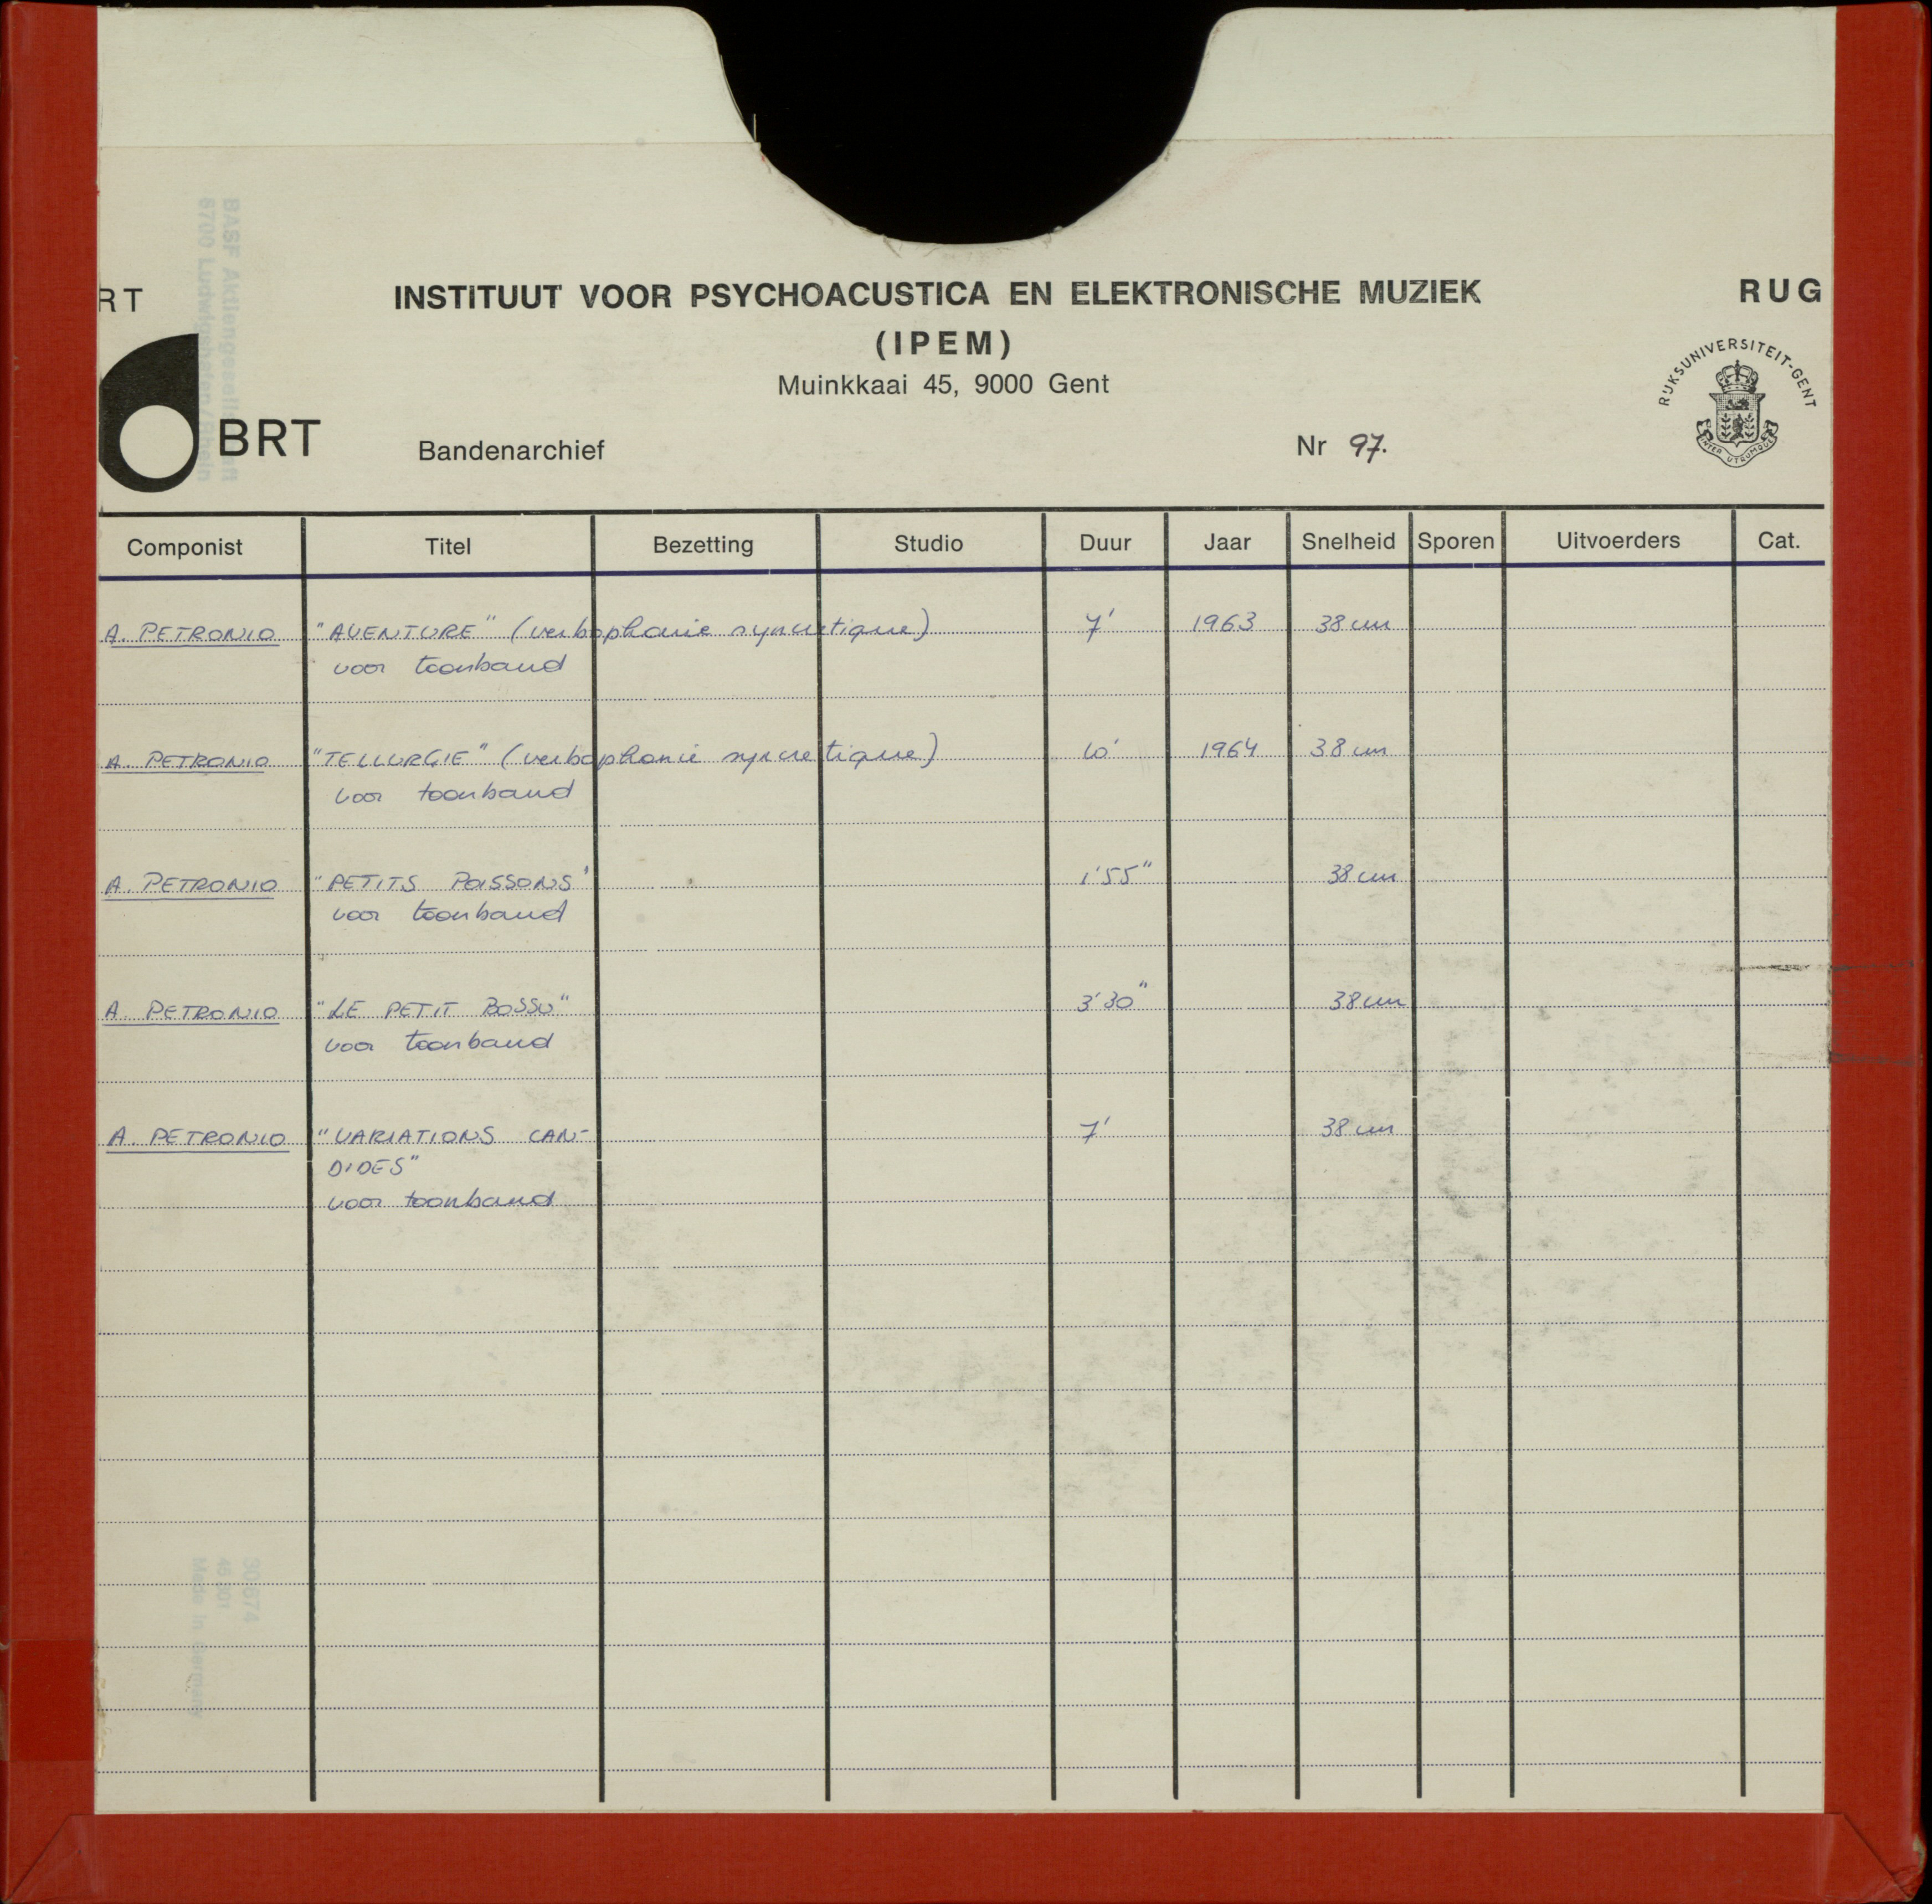 RT INSTITUUT VOOR PSYCHOACUSTICA EN ELEKTRONISCHE MUZIEK RUG
(IPEM)
Muinkkaai 45, 9000 Gent
RIJKSUNIVERSITEIT-GENT
INTER UTRUMQUE
BRT Bandenarchief Nr 97.
Componist Titel Bezetting Studio Duur Jaar Snelheid Sporen Uitvoerders Cat.
A. PETRONIO "AVENTURE" (verbophonie syncretique) 7' 1963 38 cm
voor toonband
A. PETRONIO "TELLURGIE" (verbophonie syncretique) 10' 1964 38 cm
voor toonband
A. PETRONIO "PETITS POISSONS" 1'55" 38 cm
voor toonband
A. PETRONIO "LE PETIT BOSSU" 3'30" 38 cm
voor toonband
A. PETRONIO "VARIATIONS CAN- 7' 38 cm
DIDES"
voor toonband
BASF Aktiengesellschaft
6700 Ludwigshafen/Rhein
Made in Germany